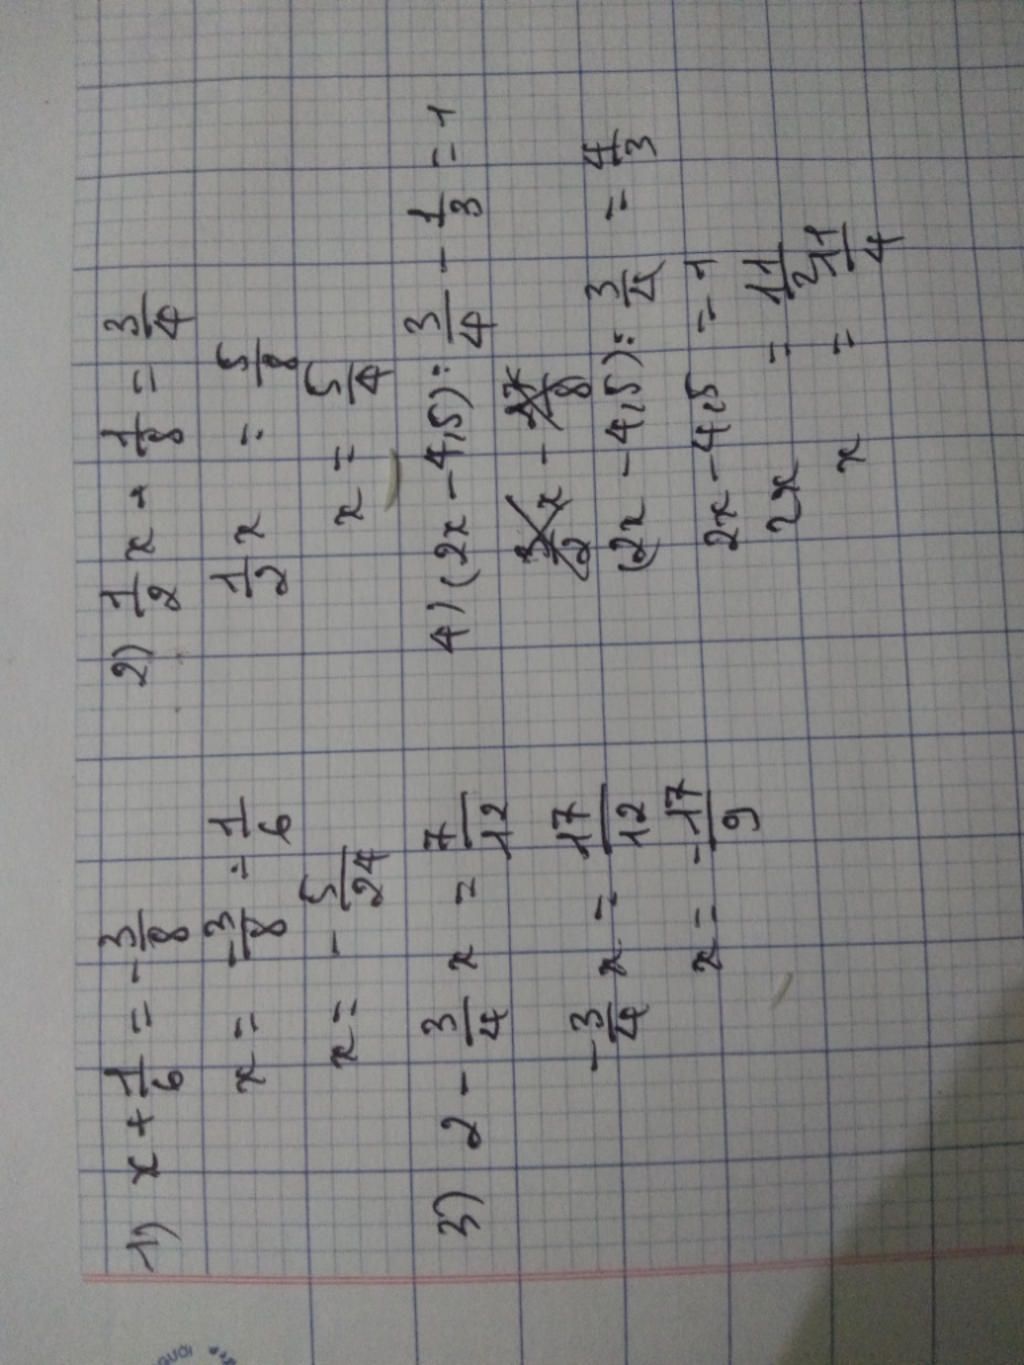 1) x + 1/6 = - 3/8
x = - 3/8 - 1/6
x = - 5/24
2) 1/2 x + 1/8 = 3/4
1/2 x = 5/8
x = 5/4
3) 2 - 3/4 x = 7/12
- 3/4 x = 17/12
x = - 17/9
4) (2x - 4,5) : 3/4 - 1/3 = 1
(2x - 4,5) : 3/4 = 4/3
2x - 4,5 = 1
2x = 11/2
x = 11/4